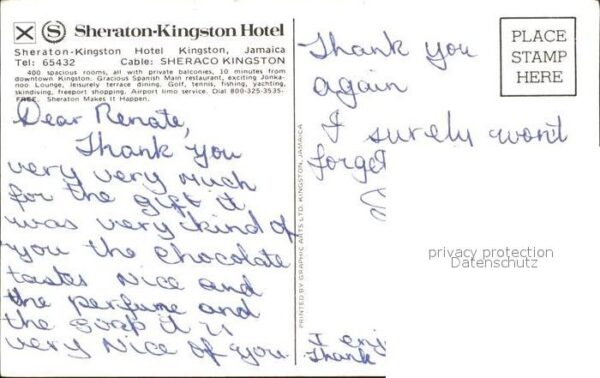 Sheraton-Kingston Hotel
Sheraton-Kingston Hotel Kingston, Jamaica
Tel: 65432 Cable: SHERACO KINGSTON
400 spacious rooms, all with private balconies, 10 minutes from
downtown Kingston. Gracious Spanish Main restaurant, exciting Jonka-
noo Lounge, leisurely terrace dining. Golf, tennis, fishing, yachting,
skindiving, freeport shopping. Airport limo service. Dial 800-325-3535-
FREE. Sheraton Makes It Happen.
Dear Renate,
Thank you
very very much
for the gift it
was very kind of
you the chocolate
tastes nice and
the perfume and
the soap it is
very nice of you
PRINTED BY GRAPHIC ARTS LTD. KINGSTON, JAMAICA
Thank you
again
I surely wont
forget
I enj
Thank
PLACE
STAMP
HERE
privacy protection
Datenschutz